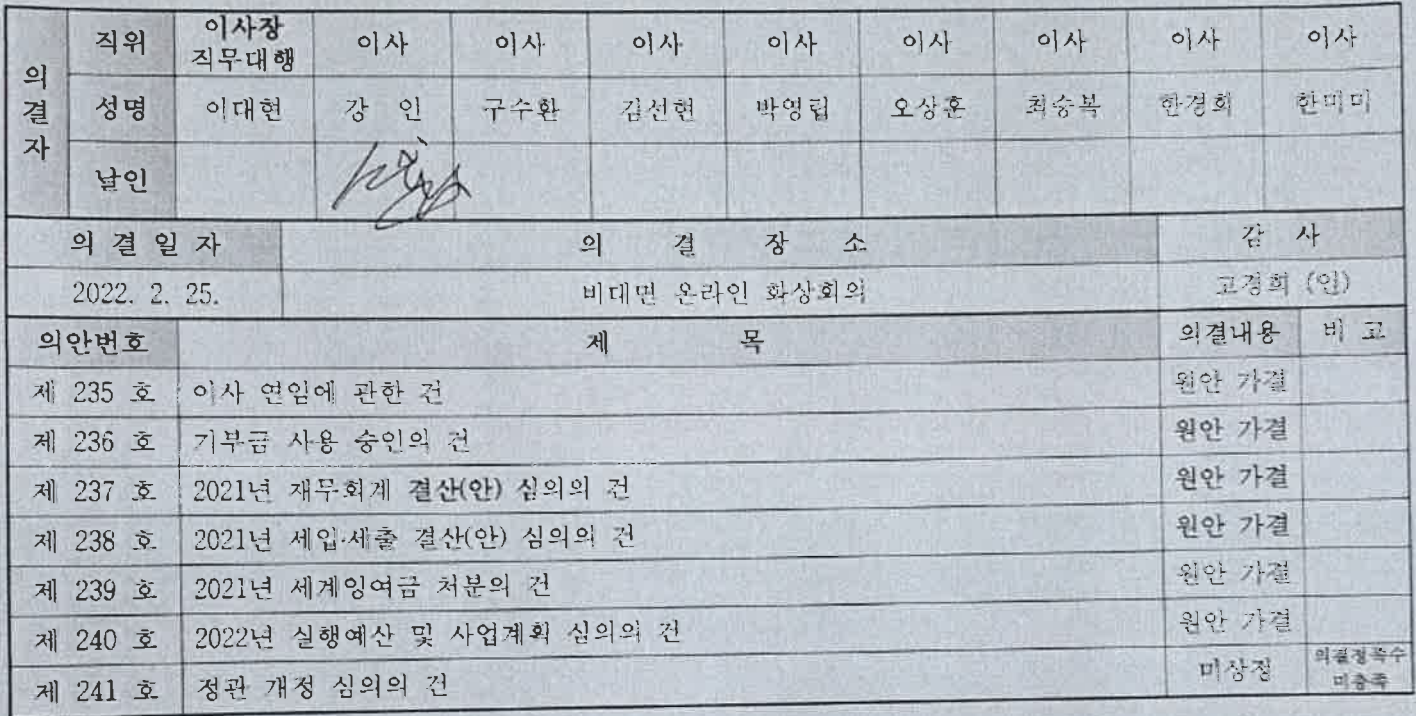 의결자
직위 이사장 직무대행 이사 이사 이사 이사 이사 이사 이사 이사
성명 이대현 강 인 구수환 김선현 박영립 오상훈 최승복 한경희 한미미
날인
의 결 일 자 의 결 장 소 감 사
2022. 2. 25. 비대면 온라인 화상회의 고경희 (인)
의안번호 제 목 의결내용 비 고
제 235 호 이사 연임에 관한 건 원안 가결
제 236 호 기부금 사용 승인의 건 원안 가결
제 237 호 2021년 재무회계 결산(안) 심의의 건 원안 가결
제 238 호 2021년 세입·세출 결산(안) 심의의 건 원안 가결
제 239 호 2021년 세계잉여금 처분의 건 원안 가결
제 240 호 2022년 실행예산 및 사업계획 심의의 건 원안 가결
제 241 호 정관 개정 심의의 건 미상정 의결정족수 미충족